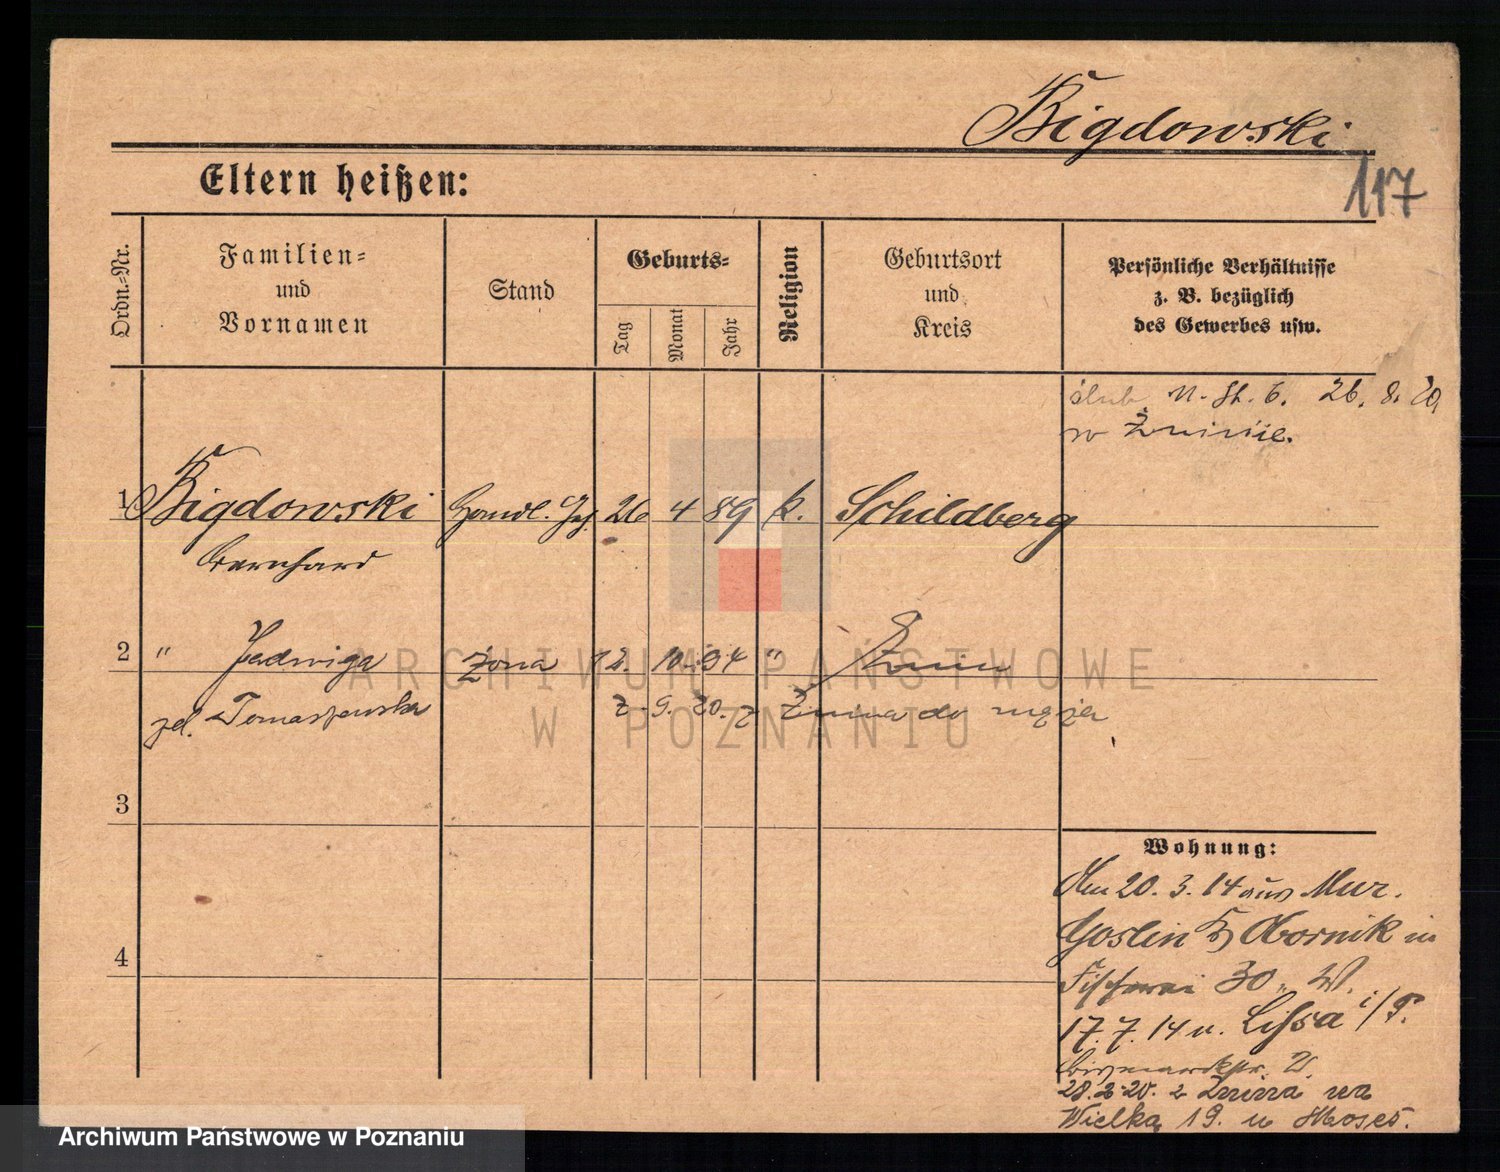 Bigdowski
117
Eltern heißen:
Ordn.-Nr.
Familien-
und
Vornamen
Stand
Geburts-
Tag
Monat
Jahr
Religion
Geburtsort
und
Kreis
Persönliche Verhältnisse
z. B. bezüglich
des Gewerbes usw.
ślub 26. 8. 20
w Żninie.
1 Bigdowski Handl. 26 4 89 k. Schildberg
Bernhard
2 " Jadwiga żona 12. 10. 94 " Żnin
zd. Tomaszewska 2. 9. 20. z Żnina do męża
3
4
Wohnung:
Am 20. 3. 14 aus Mur.
Goslin Kr. Obornik in
Fischerei 30. W.
17. 7. 14 n. Lissa i/P.
Bismarckstr.
28. 2. 20. z Żnina na
Wielką 19. u
ARCHIWUM PAŃSTWOWE
W POZNANIU
Archiwum Państwowe w Poznaniu